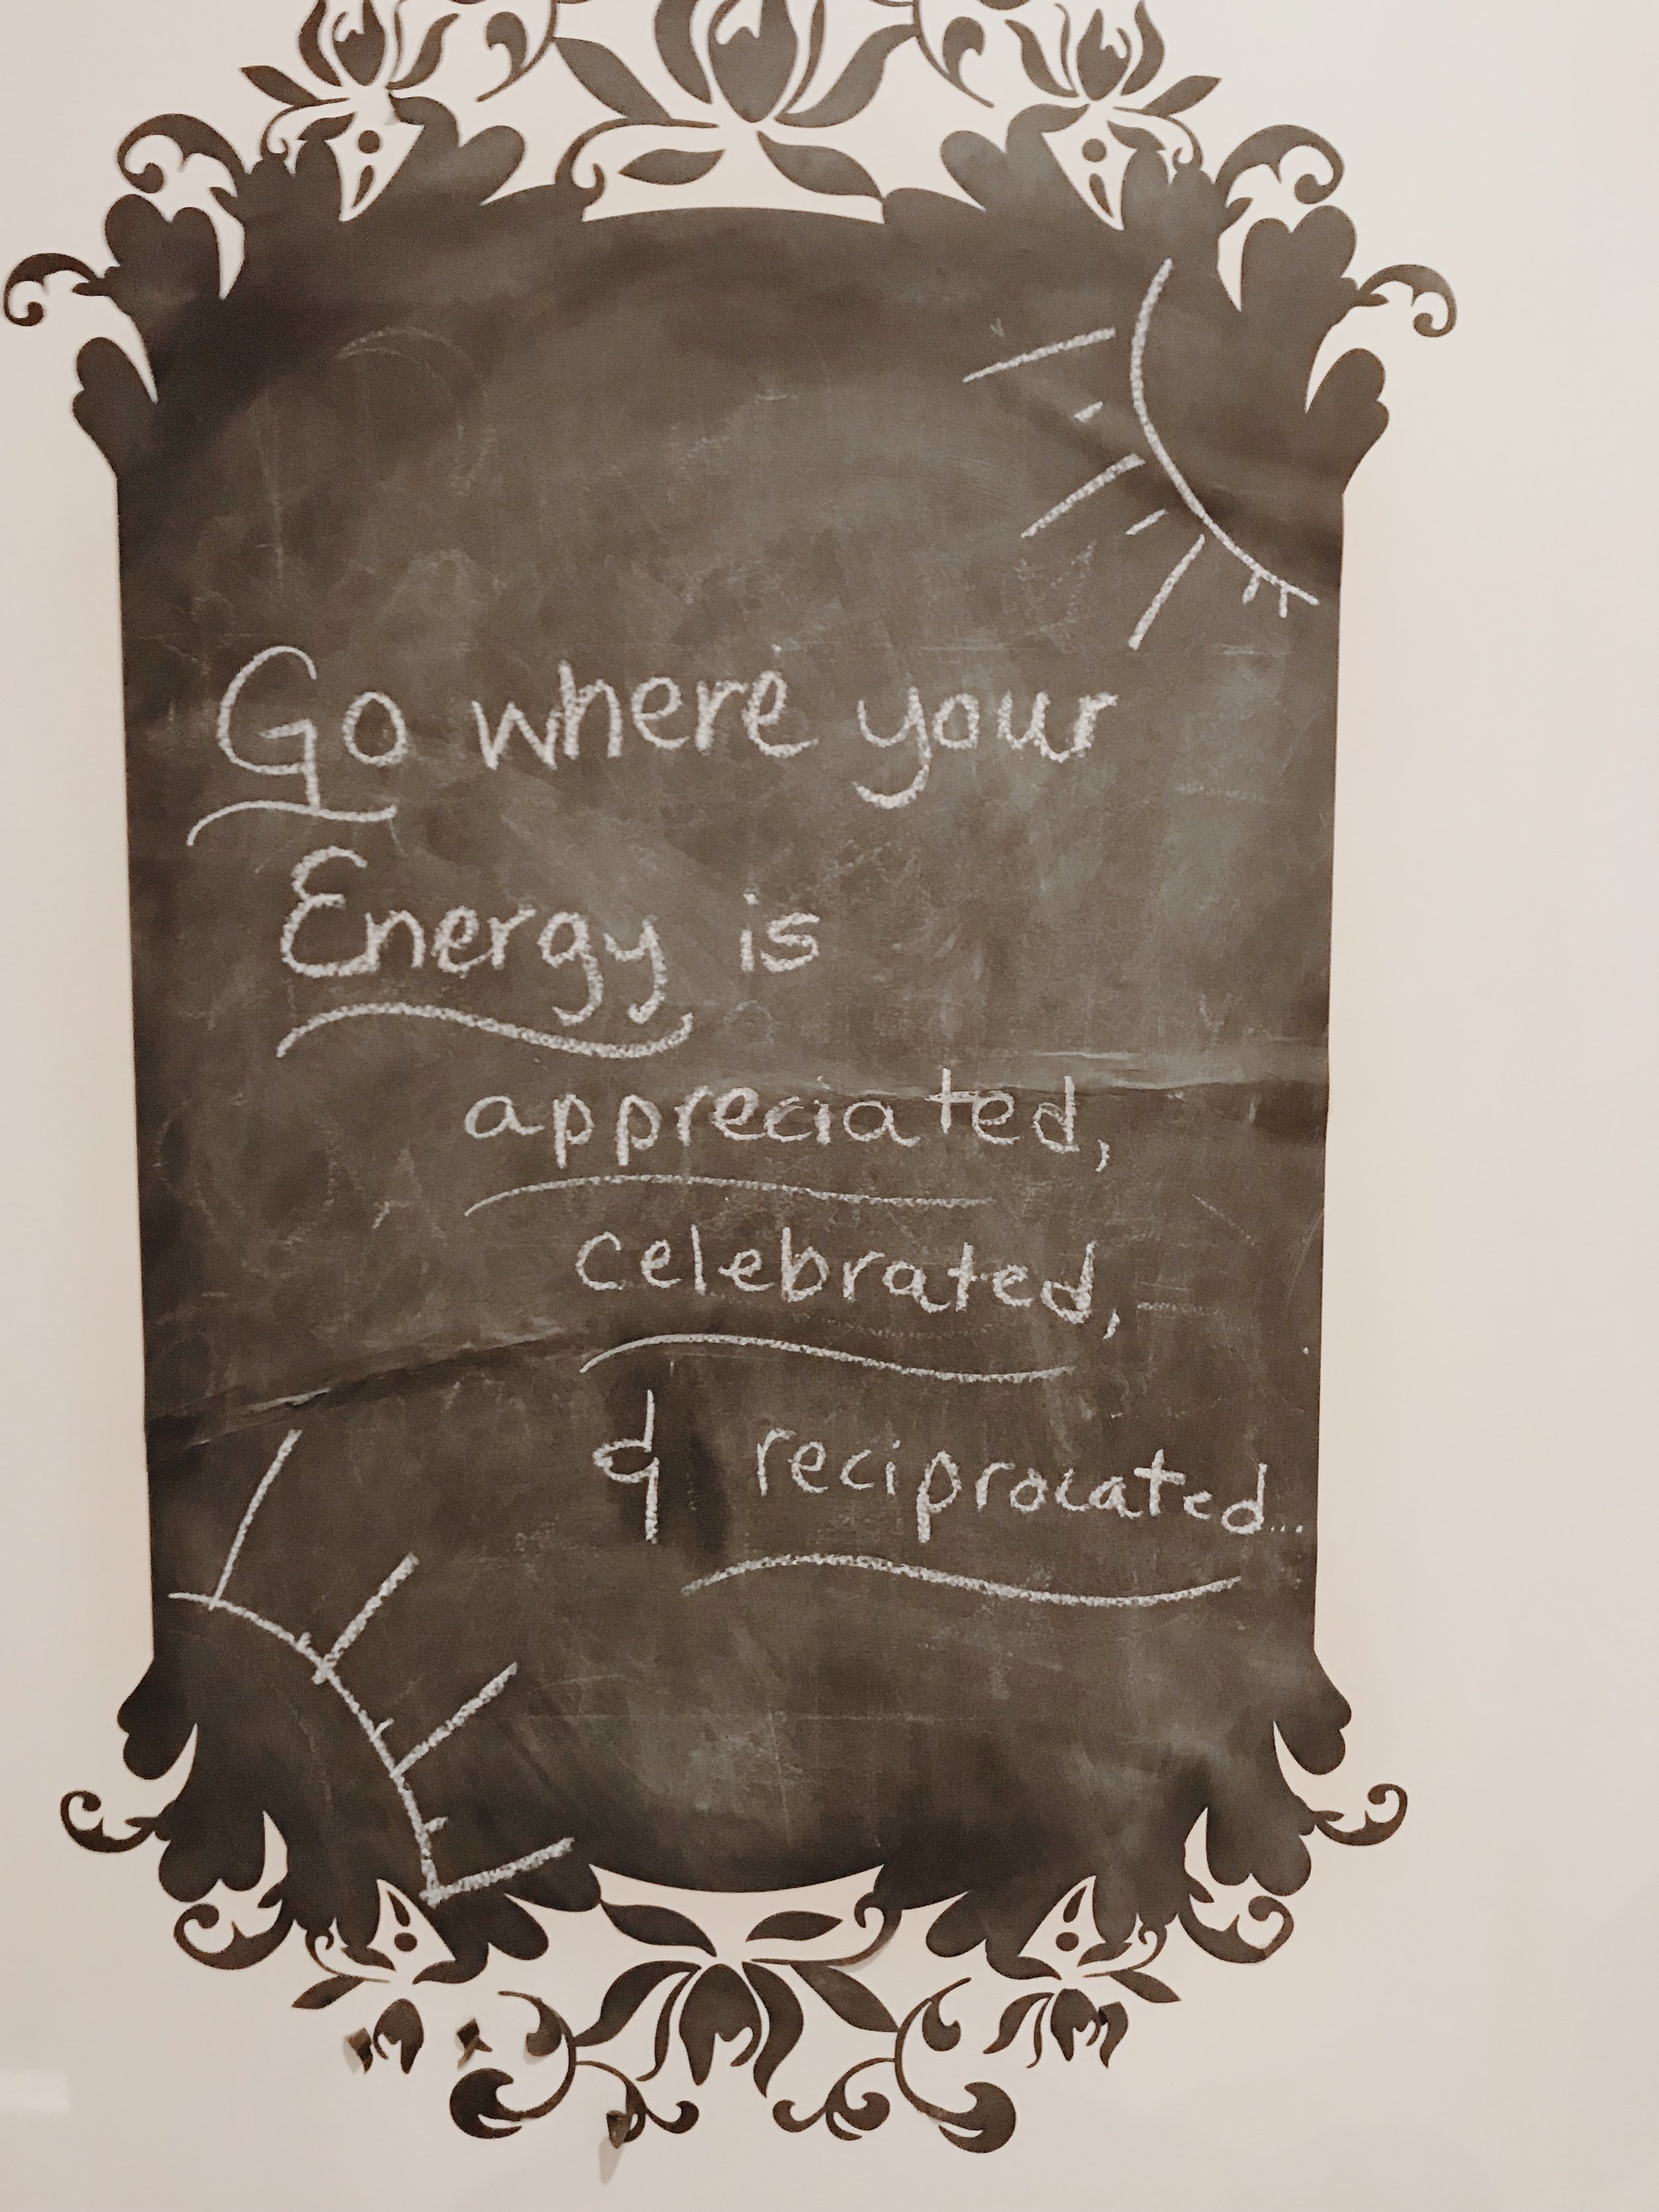 Go where your
Energy is
appreciated,
celebrated,
& reciprocated...